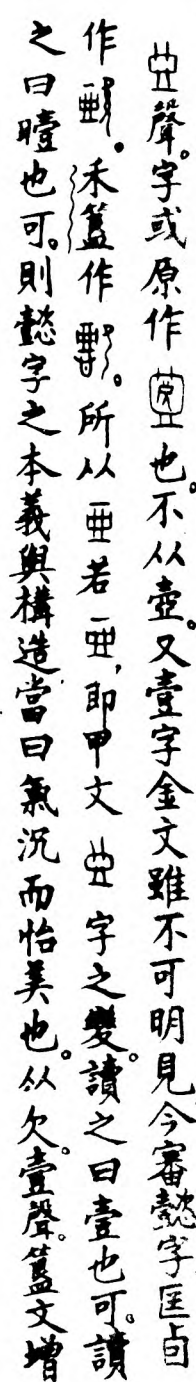 聲。字或原作也。不从壺。又壹字金文雖不可明見今審懿字匡卣
作。禾簋作。所从若，即甲文字之變。讀之曰壹也可。讀
之曰曀也可。則懿字之本義與構造當曰氣沉而怡美也。从欠。壹聲。簋文增